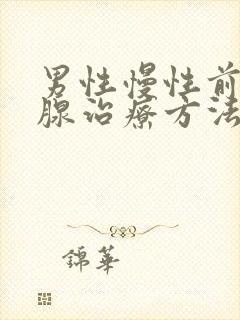 男性慢性前
腺治療方法
錦華